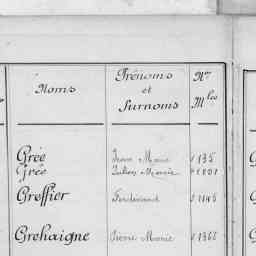 Noms Prénoms et Surnoms Nos Mles
Grée Jean Marie 135
Grée Julien Marie
Greffier Ferdinand 1145
Grehaigne Pierre Marie 1366